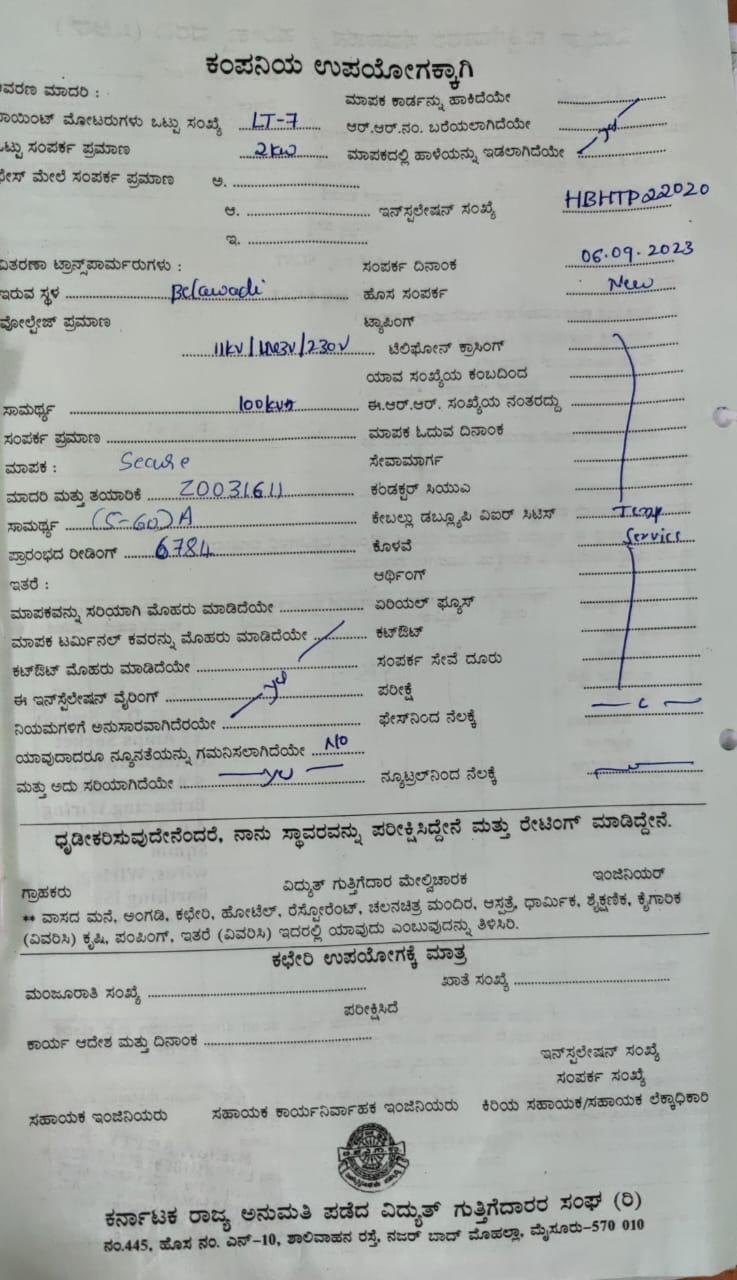 ಕಂಪನಿಯ ಉಪಯೋಗಕ್ಕಾಗಿ
ವರಣ ಮಾದರಿ : ಮಾಪಕ ಕಾರ್ಡನ್ನು ಹಾಕಿದೆಯೇ
ಾಯಿಂಟ್ ಮೋಟರುಗಳು ಒಟ್ಟು ಸಂಖ್ಯೆ LT-7 ಆರ್.ಆರ್.ನಂ. ಬರೆಯಲಾಗಿದೆಯೇ
ಒಟ್ಟು ಸಂಪರ್ಕ ಪ್ರಮಾಣ 2kw ಮಾಪಕದಲ್ಲಿ ಹಾಳೆಯನ್ನು ಇಡಲಾಗಿದೆಯೇ yes
ಫೇಸ್ ಮೇಲೆ ಸಂಪರ್ಕ ಪ್ರಮಾಣ ಅ.
ಆ. ಇನ್‌ಸ್ಟಲೇಷನ್ ಸಂಖ್ಯೆ HBHTP22020
ಇ.
ವಿತರಣಾ ಟ್ರಾನ್ಸ್‌ಪಾರ್ಮರುಗಳು : ಸಂಪರ್ಕ ದಿನಾಂಕ 06.09.2023
ಇರುವ ಸ್ಥಳ Belawadi ಹೊಸ ಸಂಪರ್ಕ New
ವೋಲ್ಟೇಜ್ ಪ್ರಮಾಣ ಟ್ಯಾಪಿಂಗ್
11kv/ /230v ಟೆಲಿಫೋನ್ ಕ್ರಾಸಿಂಗ್
ಯಾವ ಸಂಖ್ಯೆಯ ಕಂಬದಿಂದ
ಸಾಮರ್ಥ್ಯ 100kva ಈ.ಆರ್.ಆರ್. ಸಂಖ್ಯೆಯ ನಂತರದ್ದು
ಸಂಪರ್ಕ ಪ್ರಮಾಣ ಮಾಪಕ ಓದುವ ದಿನಾಂಕ
ಮಾಪಕ : Secure ಸೇವಾಮಾರ್ಗ
ಮಾದರಿ ಮತ್ತು ತಯಾರಿಕೆ Z0031611 ಕಂಡಕ್ಟರ್ ಸಿಯುಎ
ಸಾಮರ್ಥ್ಯ (5-60)A ಕೇಬಲ್ಲು ಡಬ್ಲ್ಯೂಪಿ ವಿಐರ್ ಸಿಟಿಸ್ Temp
ಪ್ರಾರಂಭದ ರೀಡಿಂಗ್ 6784 ಕೊಳವೆ Service
ಇತರೆ : ಅರ್ಥಿಂಗ್
ಮಾಪಕವನ್ನು ಸರಿಯಾಗಿ ಮೊಹರು ಮಾಡಿದೆಯೇ ಏರಿಯಲ್ ಫ್ಯೂಸ್
ಮಾಪಕ ಟರ್ಮಿನಲ್ ಕವರನ್ನು ಮೊಹರು ಮಾಡಿದೆಯೇ ಕಟ್‌ಔಟ್
ಕಟ್‌ಔಟ್ ಮೊಹರು ಮಾಡಿದೆಯೇ ಸಂಪರ್ಕ ಸೇವೆ ದೂರು
ಈ ಇನ್‌ಸ್ಟೆಲೇಷನ್ ವೈರಿಂಗ್ yes ಪರೀಕ್ಷೆ
ನಿಯಮಗಳಿಗೆ ಅನುಸಾರವಾಗಿದೆರಯೇ ಫೇಸ್‌ನಿಂದ ನೆಲಕ್ಕೆ
ಯಾವುದಾದರೂ ನ್ಯೂನತೆಯನ್ನು ಗಮನಿಸಲಾಗಿದೆಯೇ No
ಮತ್ತು ಅದು ಸರಿಯಾಗಿದೆಯೇ yes ನ್ಯೂಟ್ರಲ್‌ನಿಂದ ನೆಲಕ್ಕೆ
ಧೃಡೀಕರಿಸುವುದೇನೆಂದರೆ, ನಾನು ಸ್ಥಾವರವನ್ನು ಪರೀಕ್ಷಿಸಿದ್ದೇನೆ ಮತ್ತು ರೇಟಿಂಗ್ ಮಾಡಿದ್ದೇನೆ.
ಗ್ರಾಹಕರು ವಿದ್ಯುತ್ ಗುತ್ತಿಗೆದಾರ ಮೇಲ್ವಿಚಾರಕ ಇಂಜಿನಿಯರ್
** ವಾಸದ ಮನೆ, ಅಂಗಡಿ, ಕಛೇರಿ, ಹೋಟೆಲ್, ರೆಸ್ಟೋರೆಂಟ್, ಚಲನಚಿತ್ರ ಮಂದಿರ, ಆಸ್ಪತ್ರೆ, ಧಾರ್ಮಿಕ, ಶೈಕ್ಷಣಿಕ, ಕೈಗಾರಿಕ
(ವಿವರಿಸಿ) ಕೃಷಿ, ಪಂಪಿಂಗ್, ಇತರೆ (ವಿವರಿಸಿ) ಇದರಲ್ಲಿ ಯಾವುದು ಎಂಬುವುದನ್ನು ತಿಳಿಸಿರಿ.
ಕಛೇರಿ ಉಪಯೋಗಕ್ಕೆ ಮಾತ್ರ
ಮಂಜೂರಾತಿ ಸಂಖ್ಯೆ ಖಾತೆ ಸಂಖ್ಯೆ
ಪರೀಕ್ಷಿಸಿದೆ
ಕಾರ್ಯ ಆದೇಶ ಮತ್ತು ದಿನಾಂಕ
ಇನ್‌ಸ್ಪಲೇಷನ್ ಸಂಖ್ಯೆ
ಸಂಪರ್ಕ ಸಂಖ್ಯೆ
ಸಹಾಯಕ ಇಂಜಿನಿಯರು ಸಹಾಯಕ ಕಾರ್ಯನಿರ್ವಾಹಕ ಇಂಜಿನಿಯರು ಕಿರಿಯ ಸಹಾಯಕ/ಸಹಾಯಕ ಲೆಕ್ಕಾಧಿಕಾರಿ
ಕರ್ನಾಟಕ ರಾಜ್ಯ ಅನುಮತಿ ಪಡೆದ ವಿದ್ಯುತ್ ಗುತ್ತಿಗೆದಾರರ ಸಂಘ (ರಿ)
ನಂ.445, ಹೊಸ ನಂ. ಎನ್-10, ಶಾಲಿವಾಹನ ರಸ್ತೆ, ನಜರ್ ಬಾದ್ ಮೊಹಲ್ಲಾ, ಮೈಸೂರು-570 010